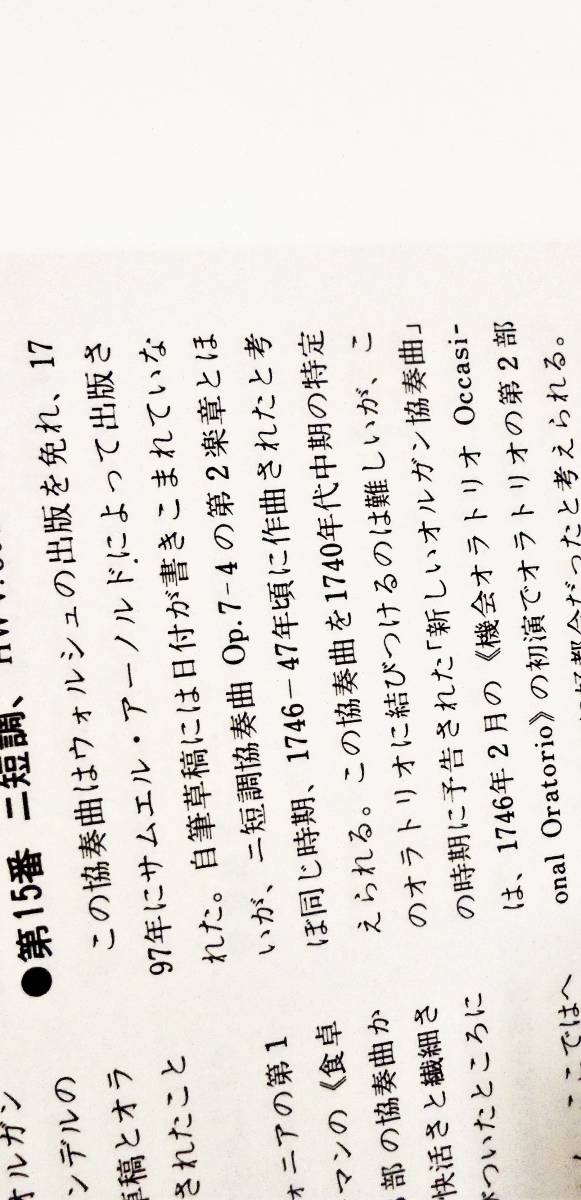 オルガン
ンデルの
草稿とオラ
されたこと
ォニアの第1
マンの《食卓
部の協奏曲か
快活さと繊細さ
づついたところに
ここではへ
●第15番 ニ短調、HWV.
この協奏曲はウォルシュの出版を免れ、17
97年にサムエル・アーノルドによって出版さ
れた。自筆草稿には日付が書きこまれていな
いが、ニ短調協奏曲 Op.7-4 の第2楽章とほ
ぼ同じ時期、1746-47年頃に作曲されたと考
えられる。この協奏曲を1740年代中期の特定
のオラトリオに結びつけるのは難しいが、こ
の時期に予告された「新しいオルガン協奏曲」
は、1746年2月の《機会オラトリオ Occasi-
onal Oratorio》の初演でオラトリオの第2部
好都合だったと考えられる。